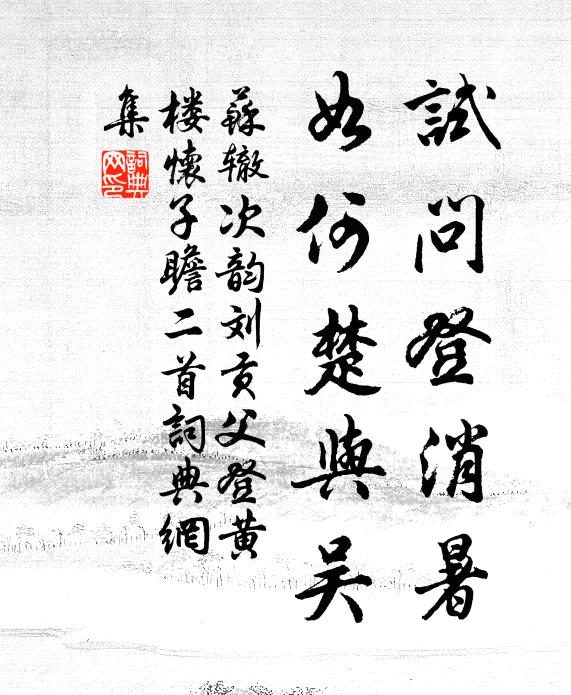 試問登消暑
如何楚與吳
蘇轍次韵刘贡父登黄
楼懷子瞻二首詞典網
集
詞典
网印